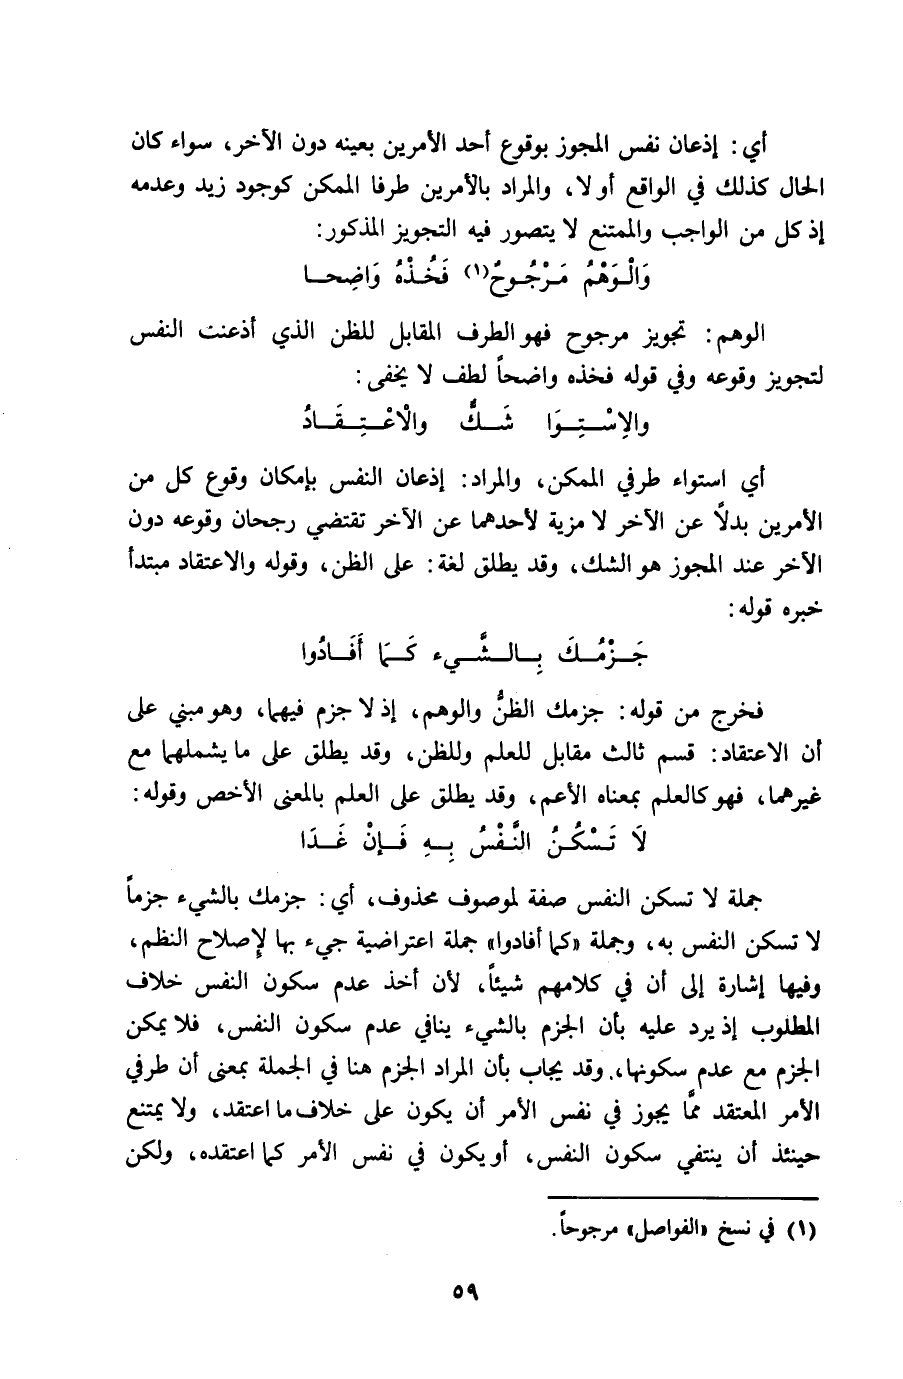 أي : إذعان نفس المجوز بوقوع أحد الأمرين بعينه دون الآخر، سواء كان
الحال كذلك في الواقع أو لا، والمراد بالأمرين طرفا الممكن كوجود زيد وعدمه
إذ كل من الواجب والممتنع لا يتصور فيه التجويز المذكور:
وَالْوَهْمُ مَرْجُوحٌ(١) فَخُذْهُ وَاضِحا
الوهم: تجويز مرجوح فهو الطرف المقابل للظن الذي أذعنت النفس
لتجويز وقوعه وفي قوله فخذه واضحاً لطف لا يخفى:
والاِسْتِوَا شَكٌّ والْاعْتِقَادُ
أي استواء طرفي الممكن، والمراد: إذعان النفس بإمكان وقوع كل من
الأمرين بدلًا عن الآخر لا مزية لأحدهما عن الآخر تقتضي رجحان وقوعه دون
الآخر عند المجوز هو الشك، وقد يطلق لغة: على الظن، وقوله والاعتقاد مبتدأ
خبره قوله:
جَزْمُكَ بِالشَّيء كَمَا أَفَادُوا
فخرج من قوله: جزمك الظنُّ والوهم، إذ لا جزم فيهما، وهو مبني على
أن الاعتقاد: قسم ثالث مقابل للعلم وللظن، وقد يطلق على ما يشملهما مع
غيرهما، فهو كالعلم بمعناه الأعم، وقد يطلق على العلم بالمعنى الأخص وقوله:
لَا تَسْكُنُ النَّفْسُ بِهِ فَإِنْ غَدَا
جملة لا تسكن النفس صفة لموصوف محذوف، أي: جزمك بالشيء جزماً
لا تسكن النفس به، وجملة «كما أفادوا» جملة اعتراضية جيء بها لإصلاح النظم،
وفيها إشارة إلى أن في كلامهم شيئاً، لأن أخذ عدم سكون النفس خلاف
المطلوب إذ يرد عليه بأن الجزم بالشيء ينافي عدم سكون النفس، فلا يمكن
الجزم مع عدم سكونها، وقد يجاب بأن المراد الجزم هنا في الجملة بمعنى أن طرفي
الأمر المعتقد ممَّا يجوز في نفس الأمر أن يكون على خلاف ما اعتقد، ولا يمتنع
حينئذ أن ينتفي سكون النفس، أو يكون في نفس الأمر كما اعتقده، ولكن
(١) في نسخ «الفواصل» مرجوحاً.
٥٩